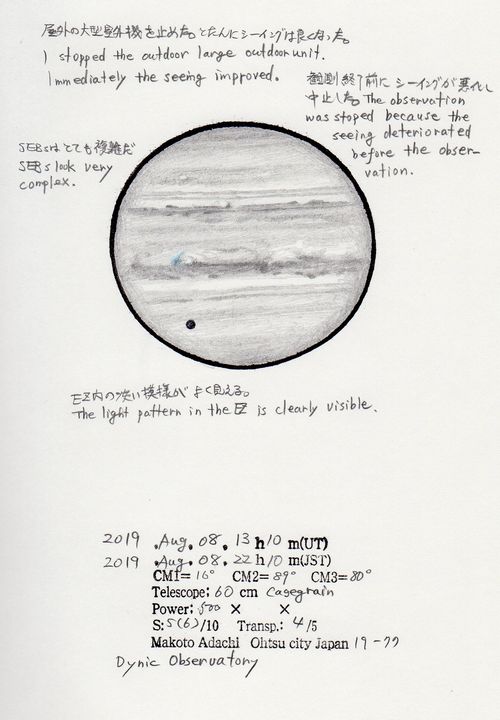 屋外の大型室外機を止めた。とたんにシーイングは良くなった。
I stopped the outdoor large outdoor unit.
Immediately the seeing improved.
観測終了前にシーイングが悪化し
中止した。The observation
was stoped because the
seeing deteriorated
before the obser-
vation.
SEBsはとても複雑だ
SEBs look very
complex.
EZ内の淡い模様がよく見える。
The light pattern in the EZ is clearly visible.
2019 .Aug. 08. 13 h 10 m(UT)
2019 .Aug. 08. 22 h 10 m(JST)
CM1= 16° CM2= 89° CM3= 80°
Telescope: 60 cm Cassegrain
Power: 500 × ×
S: 5(6)/10 Transp.: 4/5
Makoto Adachi Ohtsu city Japan 19-77
Dynic Observatory